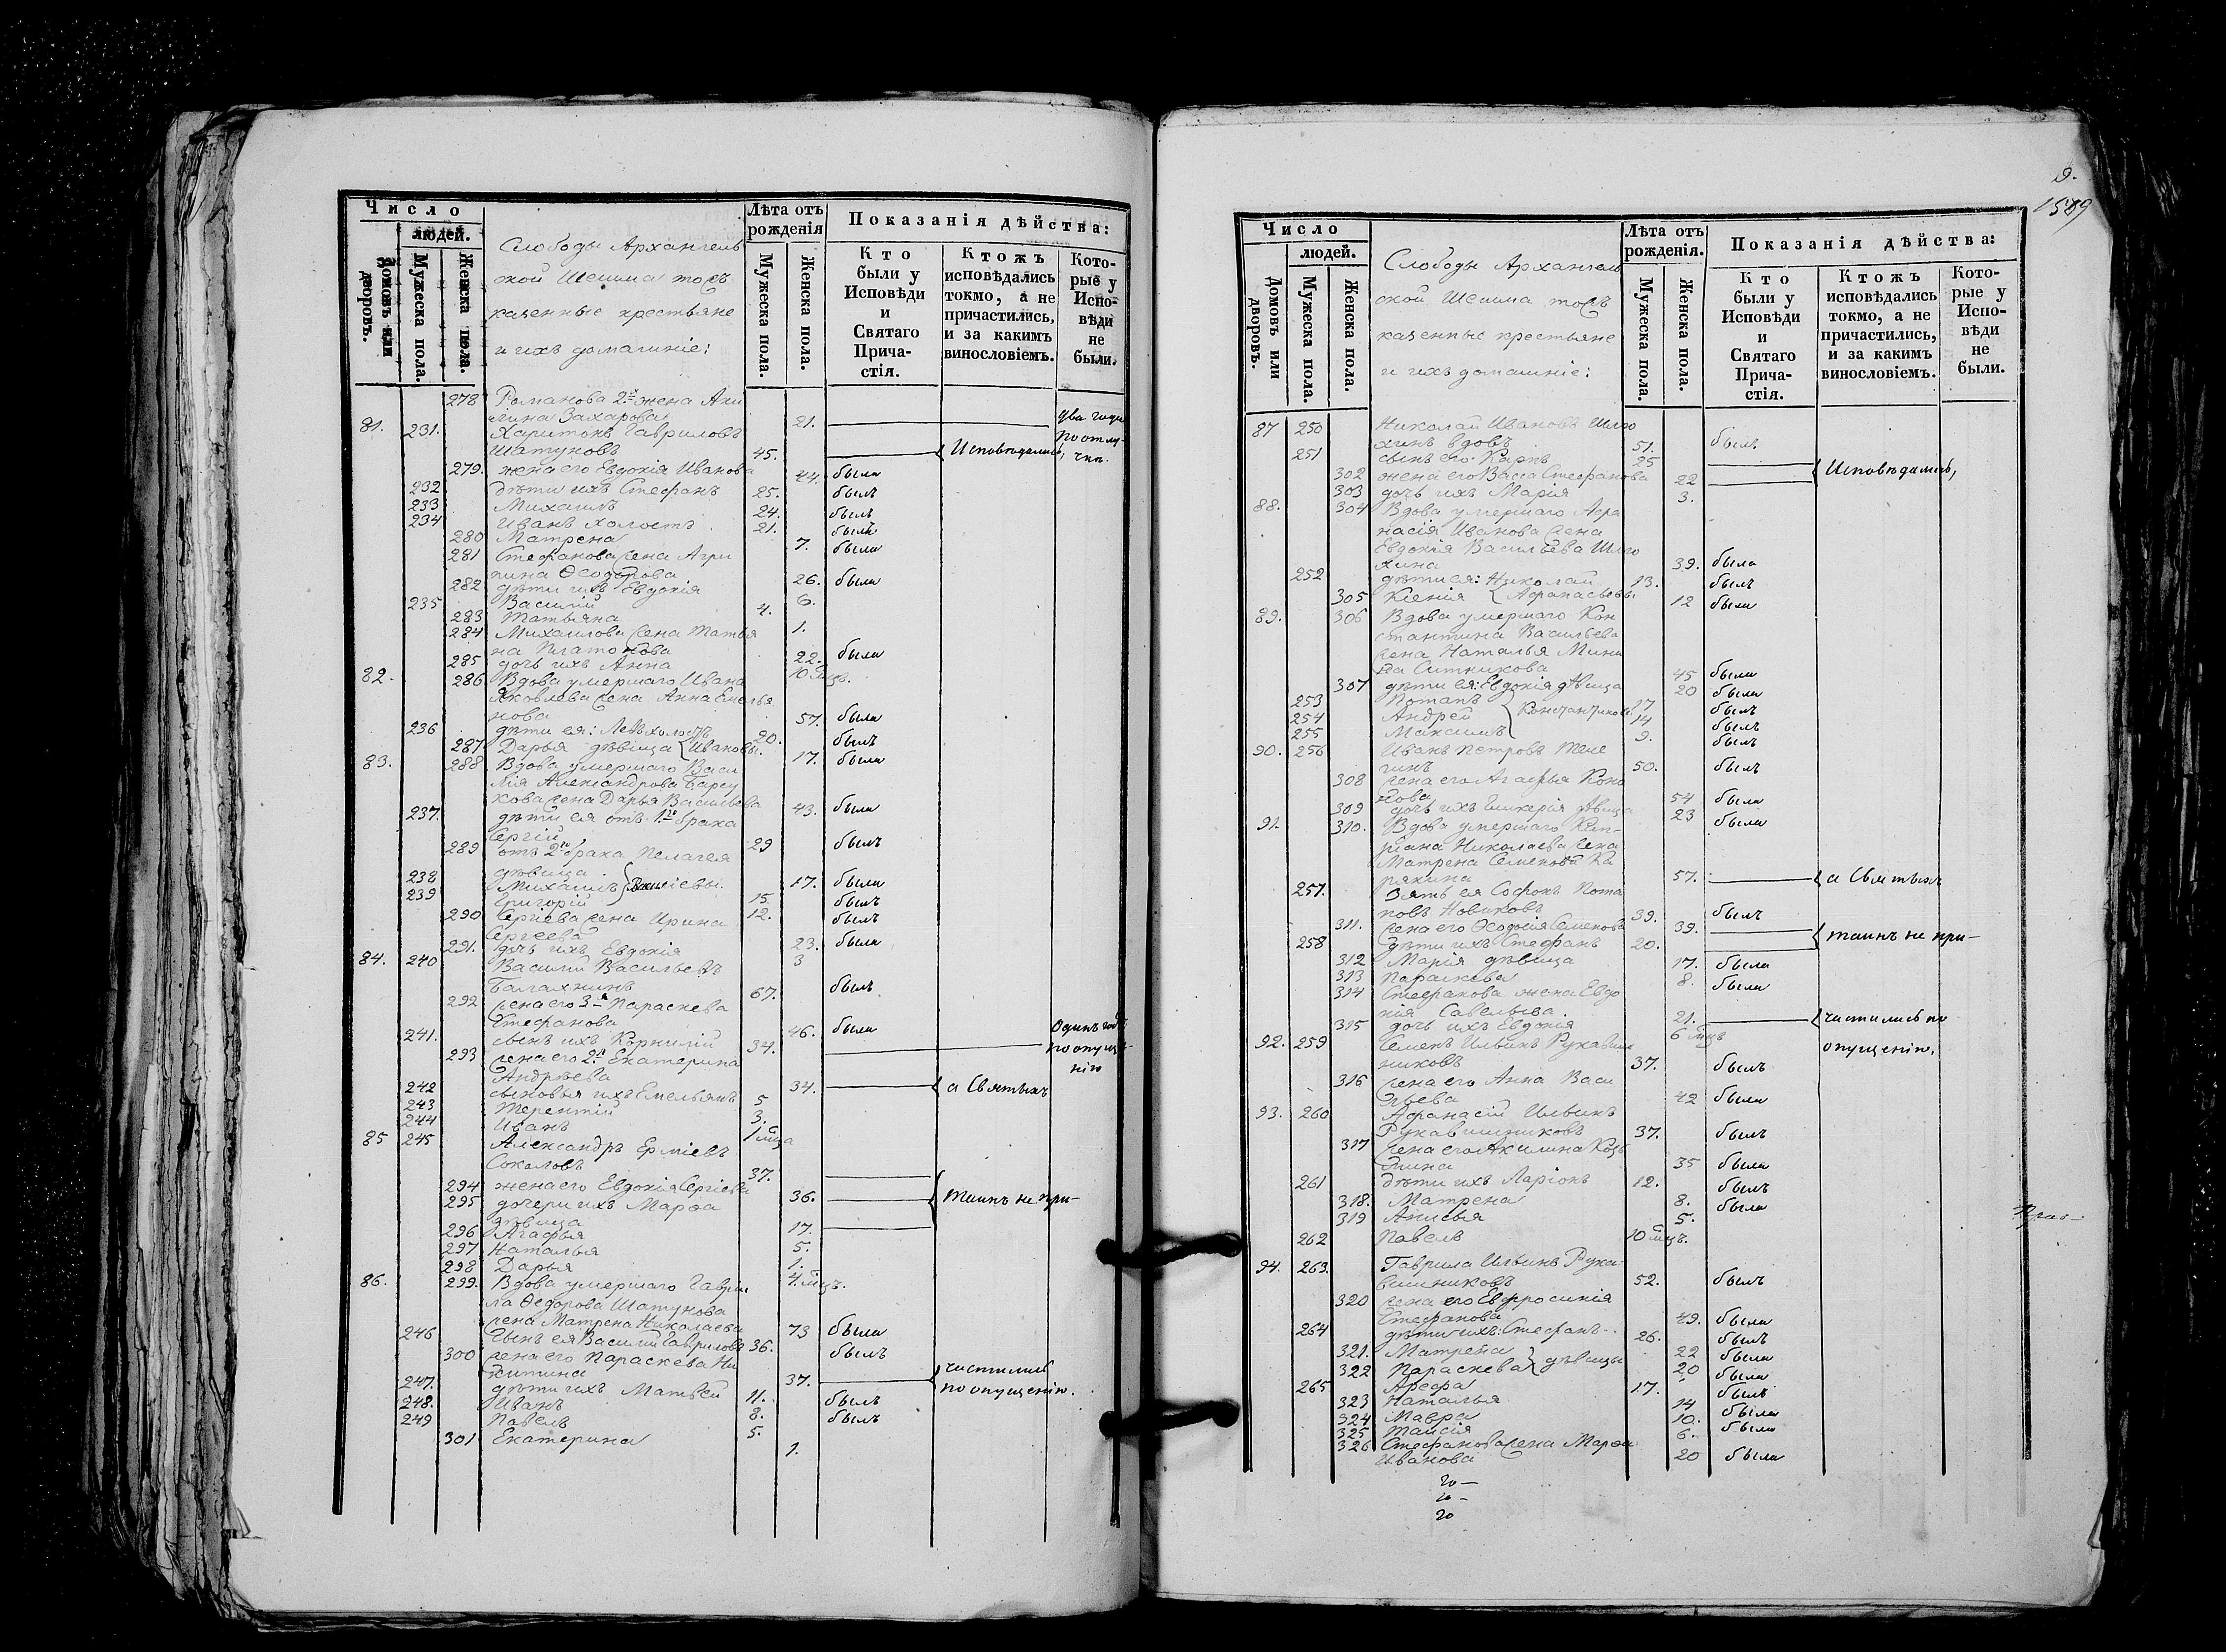 Число
людей.
Домовъ или дворовъ.
Мужеска пола.
Женска пола.
Слободы Архангель
ской Шешма тожъ
казенные крестьяне
и ихъ домашніе:
Лѣта отъ рожденія
Мужеска пола.
Женска пола.
Показанія дѣйства:
Кто были у Исповѣди и Святаго Прича- стія.
Ктожъ исповѣдались токмо, а не причастились, и за какимъ винословіемъ.
Кото- рые у Испо- вѣди не были.
278 Романова 2я жена Аки
лина Захарова 21. два года
81. 231. Харитонъ Гавриловъ по отлу-
Шатуновъ 45. Исповѣдались, чкѣ.
279. жена его Евдокія Иванова 44. была
232 дѣти ихъ Стефанъ 25. былъ
233 Михаилъ 24. былъ
234 Иванъ холостъ 21. былъ
280 Матрена 7. была
281 Стефанова жена Агри
пина Ѳеодорова 26. была
282 дѣти ихъ Евдокія 6.
235 Василій 4.
283 Татьяна 1.
284 Михаилова жена Татья
на Платонова 22. была
285 дочь ихъ Анна 10 мцъ.
82. 286 Вдова умершаго Ивана
Яковлева жена Анна Емелья
нова 57. была
236 дѣти ея: Левъ холостъ 20. былъ
287 Дарья дѣвица Ивановы. 17. была
83. 288 Вдова умершаго Васи
лія Александрова Барсу
кова жена Дарья Васильева 43. была
237. дѣти ея отъ 1го брака
Сергій 29 былъ
289 отъ 2го брака Пелагея
дѣвица 17. была
238 Михаилъ Василіевы. 15. былъ
239 Григорій 12. былъ
290 Сергіева жена Ирина
Сергеева 23. была
291. дочь ихъ Евдокія 3
84. 240 Василій Васильевъ
Балахнинъ 67. былъ
292 жена его 3я Параскева
Стефанова 46. была Одинъ годъ
241. сынъ ихъ Корнилій 34. по опуще-
293 жена его 2я Екатерина нію
Андреева 34. а Святыхъ
242 сыновья ихъ Емельянъ 5
243 Терентій 3.
244 Иванъ 1 мца
85 245 Александръ Ерміевъ
Соколовъ 37.
294 жена его Евдокія Сергіева 36. таинъ не при-
295 дочери ихъ Марѳа
дѣвица 17.
296 Агафья 5.
297 Наталья 1.
298 Дарья 4. мцъ.
86. 299. Вдова умершаго Гаври
ла Ѳедорова Шатунова
жена Матрена Николаева 73 была
246 сынъ ея Василій Гавриловъ 36. былъ
300 жена его Параскева Ни
китина 37. частились
247. дѣти ихъ Матвей 11. былъ по опущенію.
248. Иванъ 8. былъ
249 Павелъ 5.
301 Екатерина 1.
9.
1589
Число
людей.
Домовъ или дворовъ.
Мужеска пола.
Женска пола.
Слободы Архангель
ской Шешма тожъ
казенные крестьяне
и ихъ домашніе:
Лѣта отъ рожденія.
Мужеска пола.
Женска пола.
Показанія дѣйства:
Кто были у Исповѣди и Святаго Прича- стія.
Ктожъ исповѣдались токмо, а не причастились, и за какимъ винословіемъ.
Кото- рые у Испо- вѣди не были.
87 250 Николай Ивановъ Шлю
хинъ вдовъ 51. былъ
251 сынъ его Карпъ 25 Исповѣдались,
302 жена его Васса Стефанова 22
303 дочь ихъ Марія 3.
88. 304 Вдова умершаго Афа
насія Иванова жена
Евдокія Васильева Шлю
хина 39. была
252 дѣти ея: Николай 13. былъ
305 Ксенія Афанасьевы 12 была
89. 306 Вдова умершаго Кон
стантина Васильева
жена Наталья Мини
на Ситникова 45 была
307 дѣти ея: Евдокія дѣвица 20 была
253 Потапъ Константиновы 17 былъ
254 Андрей 14 былъ
255 Максимъ 9. былъ
90. 256 Иванъ Петровъ Теле
гинъ 50. былъ
308 жена его Агафья Коно
нова 54 была
309 дочь ихъ Гликерія дѣвица 23 была
91. 310. Вдова умершаго Кип-
ріана Николаева жена
Матрена Семенова Ка
рякина 57. а Святыхъ
257. Зять ея Софонъ Пота
повъ Новиковъ 39. былъ
311. жена его Ѳеодосія Семенова 39.
258 дѣти ихъ Стефанъ 20. таинъ не при-
312 Марія дѣвица 17. была
313 Параскева 8. была
314 Стефанова жена Евдо
кія Савельева. 21. частились по
315 дочь ихъ Евдокія 6 мцъ опущенію.
92. 259 Семенъ Ильинъ Рукавиш
никовъ 37. былъ
316 жена его Анна Васи
льева 42 была
93. 260 Афанасій Ильинъ
Рукавишниковъ 37. былъ
317 жена его Акилина Козь
мина 35 была
261 дѣти ихъ Ларіонъ 12. былъ
318. Матрена 8. была
319 Анисья 5.
262 Павелъ 10 мцъ.
94. 263. Гаврила Ильинъ Рука-
вишниковъ 52. былъ
320 жена его Евфросинія
Стефанова 49. была
264 дѣти ихъ: Стефанъ 26. былъ
321. Матрена 22 была
322 Параскева дѣвицы 20 была
265 Арефа 17. былъ
323 Наталья 14 была
324 Мавра 10. была
325 Таисія 6.
326 Стефанова жена Марѳа
Иванова 20 была
20 —
20 —
20